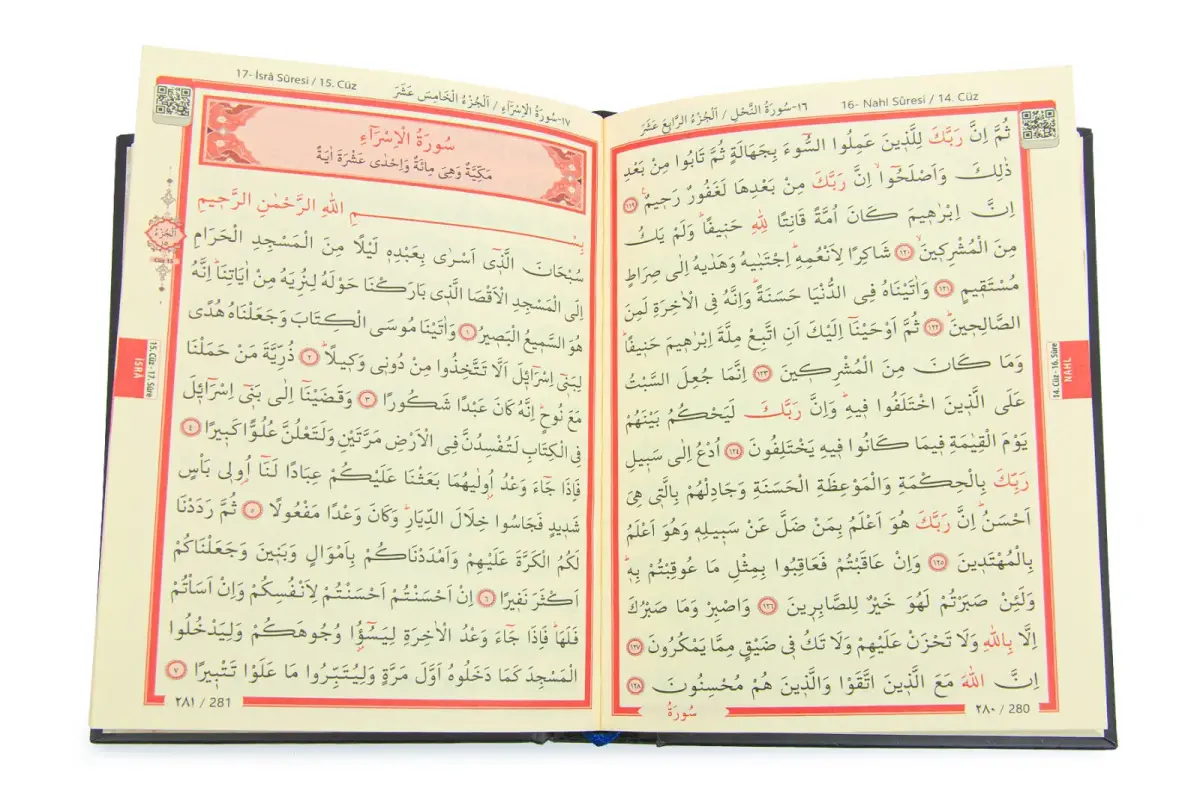 ١٦-سُورَةُ النَّحْلِ / اَلْجُزْءُ الرَّابِعَ عَشَرَ
16- Nahl Sûresi / 14. Cüz
ثُمَّ اِنَّ رَبَّكَ لِلَّذٖينَ عَمِلُوا السُّٓوءَ بِجَهَالَةٍ ثُمَّ تَابُوا مِنْ بَعْدِ
ذٰلِكَ وَاَصْلَحُٓوا اِنَّ رَبَّكَ مِنْ بَعْدِهَا لَغَفُورٌ رَحٖيمٌ ﴿١١٩﴾
اِنَّ اِبْرٰهٖيمَ كَانَ اُمَّةً قَانِتًا لِلّٰهِ حَنٖيفًا وَلَمْ يَكُ
مِنَ الْمُشْرِكٖينَ ﴿١٢٠﴾ شَاكِرًا لِاَنْعُمِهِ اِجْتَبٰيهُ وَهَدٰيهُ اِلٰى صِرَاطٍ
مُسْتَقٖيمٍ ﴿١٢١﴾ وَاٰتَيْنَاهُ فِى الدُّنْيَا حَسَنَةً وَاِنَّهُ فِى الْاٰخِرَةِ لَمِنَ
الصَّالِحٖينَ ﴿١٢٢﴾ ثُمَّ اَوْحَيْنَٓا اِلَيْكَ اَنِ اتَّبِعْ مِلَّةَ اِبْرٰهٖيمَ حَنٖيفًا
وَمَا كَانَ مِنَ الْمُشْرِكٖينَ ﴿١٢٣﴾ اِنَّمَا جُعِلَ السَّبْتُ
عَلَى الَّذٖينَ اخْتَلَفُوا فٖيهِ وَاِنَّ رَبَّكَ لَيَحْكُمُ بَيْنَهُمْ
يَوْمَ الْقِيٰمَةِ فٖيمَا كَانُوا فٖيهِ يَخْتَلِفُونَ ﴿١٢٤﴾ اُدْعُ اِلٰى سَبٖيلِ
رَبِّكَ بِالْحِكْمَةِ وَالْمَوْعِظَةِ الْحَسَنَةِ وَجَادِلْهُمْ بِالَّتٖى هِىَ
اَحْسَنُ اِنَّ رَبَّكَ هُوَ اَعْلَمُ بِمَنْ ضَلَّ عَنْ سَبٖيلِهٖ وَهُوَ اَعْلَمُ
بِالْمُهْتَدٖينَ ﴿١٢٥﴾ وَاِنْ عَاقَبْتُمْ فَعَاقِبُوا بِمِثْلِ مَا عُوقِبْتُمْ بِهٖ
وَلَئِنْ صَبَرْتُمْ لَهُوَ خَيْرٌ لِلصَّابِرٖينَ ﴿١٢٦﴾ وَاصْبِرْ وَمَا صَبْرُكَ
اِلَّا بِاللّٰهِ وَلَا تَحْزَنْ عَلَيْهِمْ وَلَا تَكُ فٖى ضَيْقٍ مِمَّا يَمْكُرُونَ ﴿١٢٧﴾
اِنَّ اللّٰهَ مَعَ الَّذٖينَ اتَّقَوْا وَالَّذٖينَ هُمْ مُحْسِنُونَ ﴿١٢٨﴾
سُورَةُ
٢٨٠ / 280
14. Cüz - 16. Sûre
NAHL
17- İsrâ Sûresi / 15. Cüz
١٧-سُورَةُ الْاِسْرَٓاءِ / اَلْجُزْءُ الْخَامِسَ عَشَرَ
سُورَةُ الْاِسْرَٓاءِ
مَكِّيَّةٌ وَهِىَ مِائَةٌ وَاِحْدٰى عَشْرَةَ اٰيَةً
بِسْمِ اللّٰهِ الرَّحْمٰنِ الرَّحٖيمِ
سُبْحَانَ الَّذٖٓى اَسْرٰى بِعَبْدِهٖ لَيْلًا مِنَ الْمَسْجِدِ الْحَرَامِ
اِلَى الْمَسْجِدِ الْاَقْصَا الَّذٖى بَارَكْنَا حَوْلَهُ لِنُرِيَهُ مِنْ اٰيَاتِنَا اِنَّهُ
هُوَ السَّمٖيعُ الْبَصٖيرُ ﴿١﴾ وَاٰتَيْنَا مُوسَى الْكِتَابَ وَجَعَلْنَاهُ هُدًى
لِبَنٖٓى اِسْرَٓائٖلَ اَلَّا تَتَّخِذُوا مِنْ دُونٖى وَكٖيلًا ﴿٢﴾ ذُرِّيَّةَ مَنْ حَمَلْنَا
مَعَ نُوحٍ اِنَّهُ كَانَ عَبْدًا شَكُورًا ﴿٣﴾ وَقَضَيْنَٓا اِلٰى بَنٖٓى اِسْرَٓائٖلَ
فِى الْكِتَابِ لَتُفْسِدُنَّ فِى الْاَرْضِ مَرَّتَيْنِ وَلَتَعْلُنَّ عُلُوًّا كَبٖيرًا ﴿٤﴾
فَاِذَا جَٓاءَ وَعْدُ اُو۫لٰيهُمَا بَعَثْنَا عَلَيْكُمْ عِبَادًا لَنَٓا اُو۬لٖى بَأْسٍ
شَدٖيدٍ فَجَاسُوا خِلَالَ الدِّيَارِ وَكَانَ وَعْدًا مَفْعُولًا ﴿٥﴾ ثُمَّ رَدَدْنَا
لَكُمُ الْكَرَّةَ عَلَيْهِمْ وَاَمْدَدْنَاكُمْ بِاَمْوَالٍ وَبَنٖينَ وَجَعَلْنَاكُمْ
اَكْثَرَ نَفٖيرًا ﴿٦﴾ اِنْ اَحْسَنْتُمْ اَحْسَنْتُمْ لِاَنْفُسِكُمْ وَاِنْ اَسَأْتُمْ
فَلَهَا فَاِذَا جَٓاءَ وَعْدُ الْاٰخِرَةِ لِيَسُٓؤُ۫ا وُجُوهَكُمْ وَلِيَدْخُلُوا
الْمَسْجِدَ كَمَا دَخَلُوهُ اَوَّلَ مَرَّةٍ وَلِيُتَبِّرُوا مَا عَلَوْا تَتْبٖيرًا ﴿٧﴾
٢٨١ / 281
اَلْجُزْءُ
Cüz 15
15. Cüz - 17. Sûre
İSRÂ